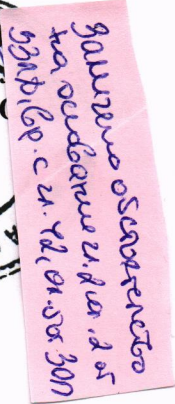 Заличено обстоятелство
на основание чл.2 ал.2 от
ЗЗЛД, вр. с чл. 42, ал.5 от ЗОП